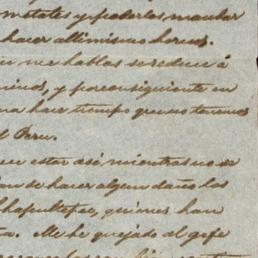 metates y poderlos mandar
hacer altimismo hornos.
me hablas se reduce á
minos, y por consiguiente en
na hace tiempo que no tenemos
l Peru.
en estar asi, mientras no de
an de hacer algun daño los
Chapultepec, quienes han
a. Me he quejado al gefe